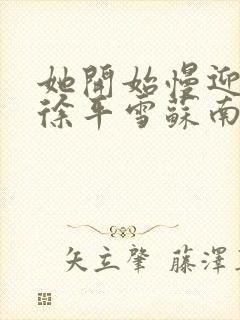 她開始慢迎
徐平雪蘇南
矢立肇 藤澤